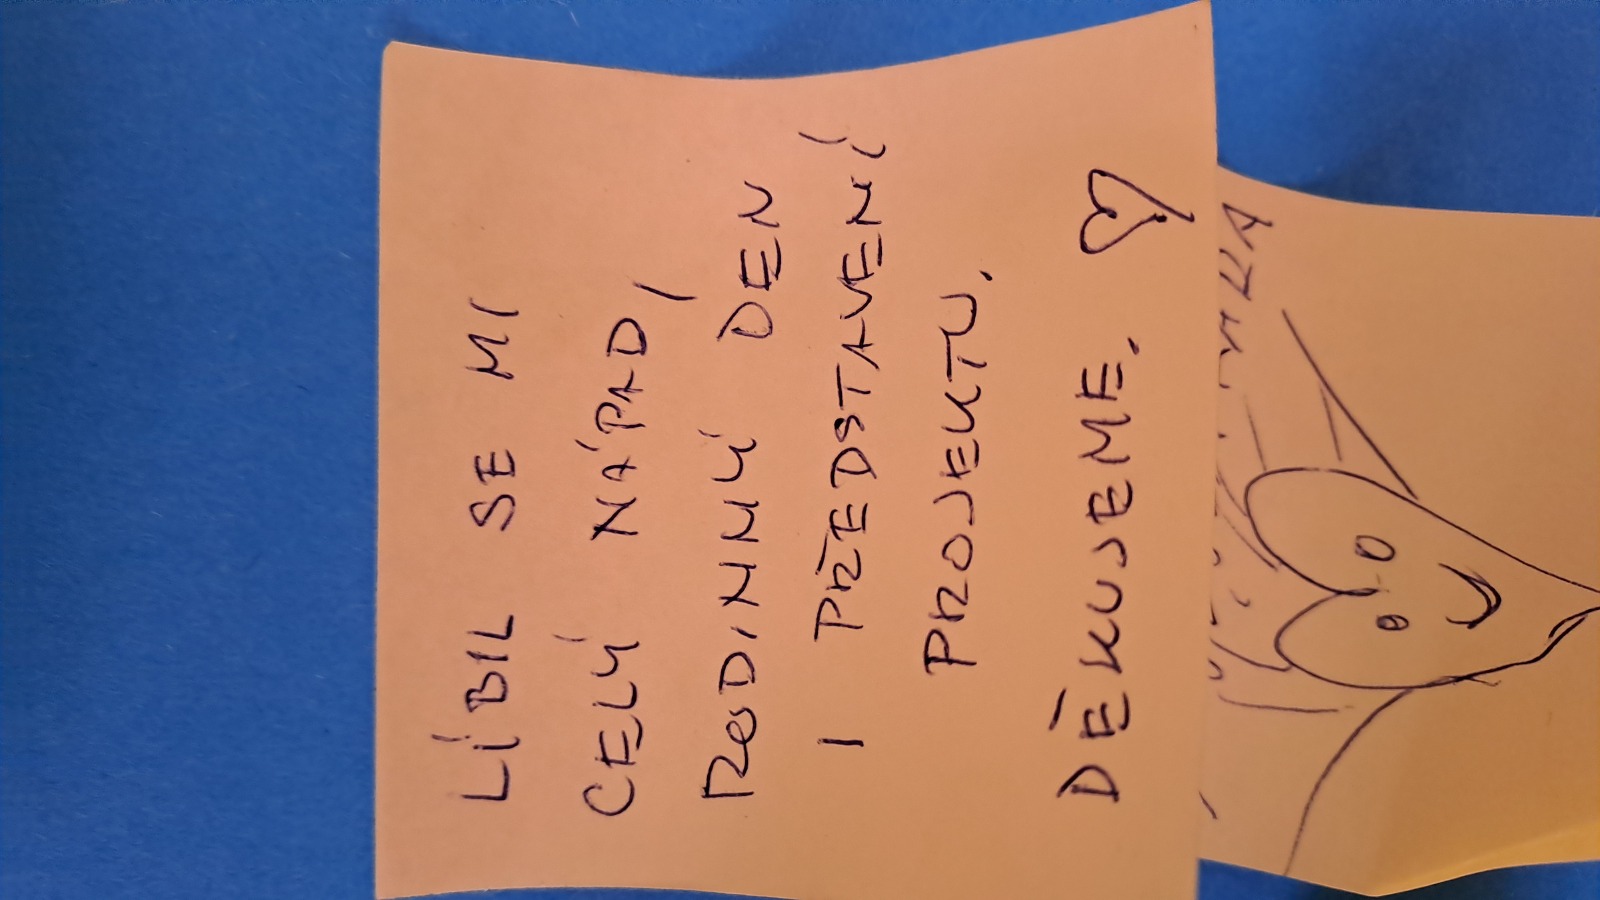 LÍBIL SE MI
CELÝ NÁPAD,
RODINNÝ DEN
I PŘEDSTAVENÍ
PROJEKTU.
DĚKUJEME.